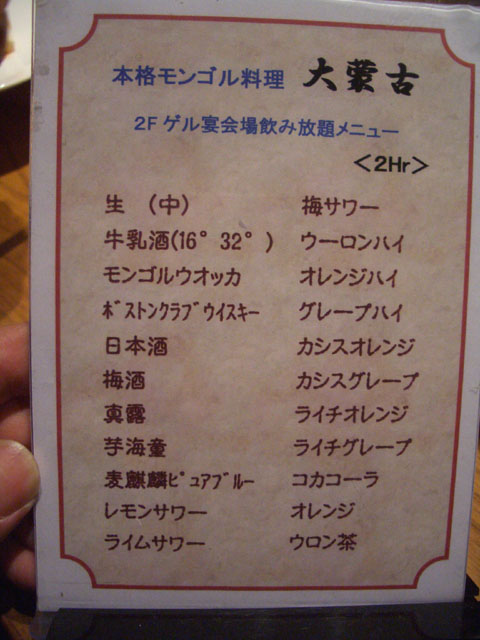 本格モンゴル料理 大蒙古
2F ゲル宴会場飲み放題メニュー
<2Hr>
生 (中)
牛乳酒(16° 32° )
モンゴルウオッカ
ﾎﾞｽﾄﾝｸﾗﾌﾞｳｲｽｷｰ
日本酒
梅酒
真露
芋海童
麦麒麟ﾋﾟｭｱﾌﾞﾙｰ
レモンサワー
ライムサワー
梅サワー
ウーロンハイ
オレンジハイ
グレープハイ
カシスオレンジ
カシスグレープ
ライチオレンジ
ライチグレープ
コカコーラ
オレンジ
ウロン茶